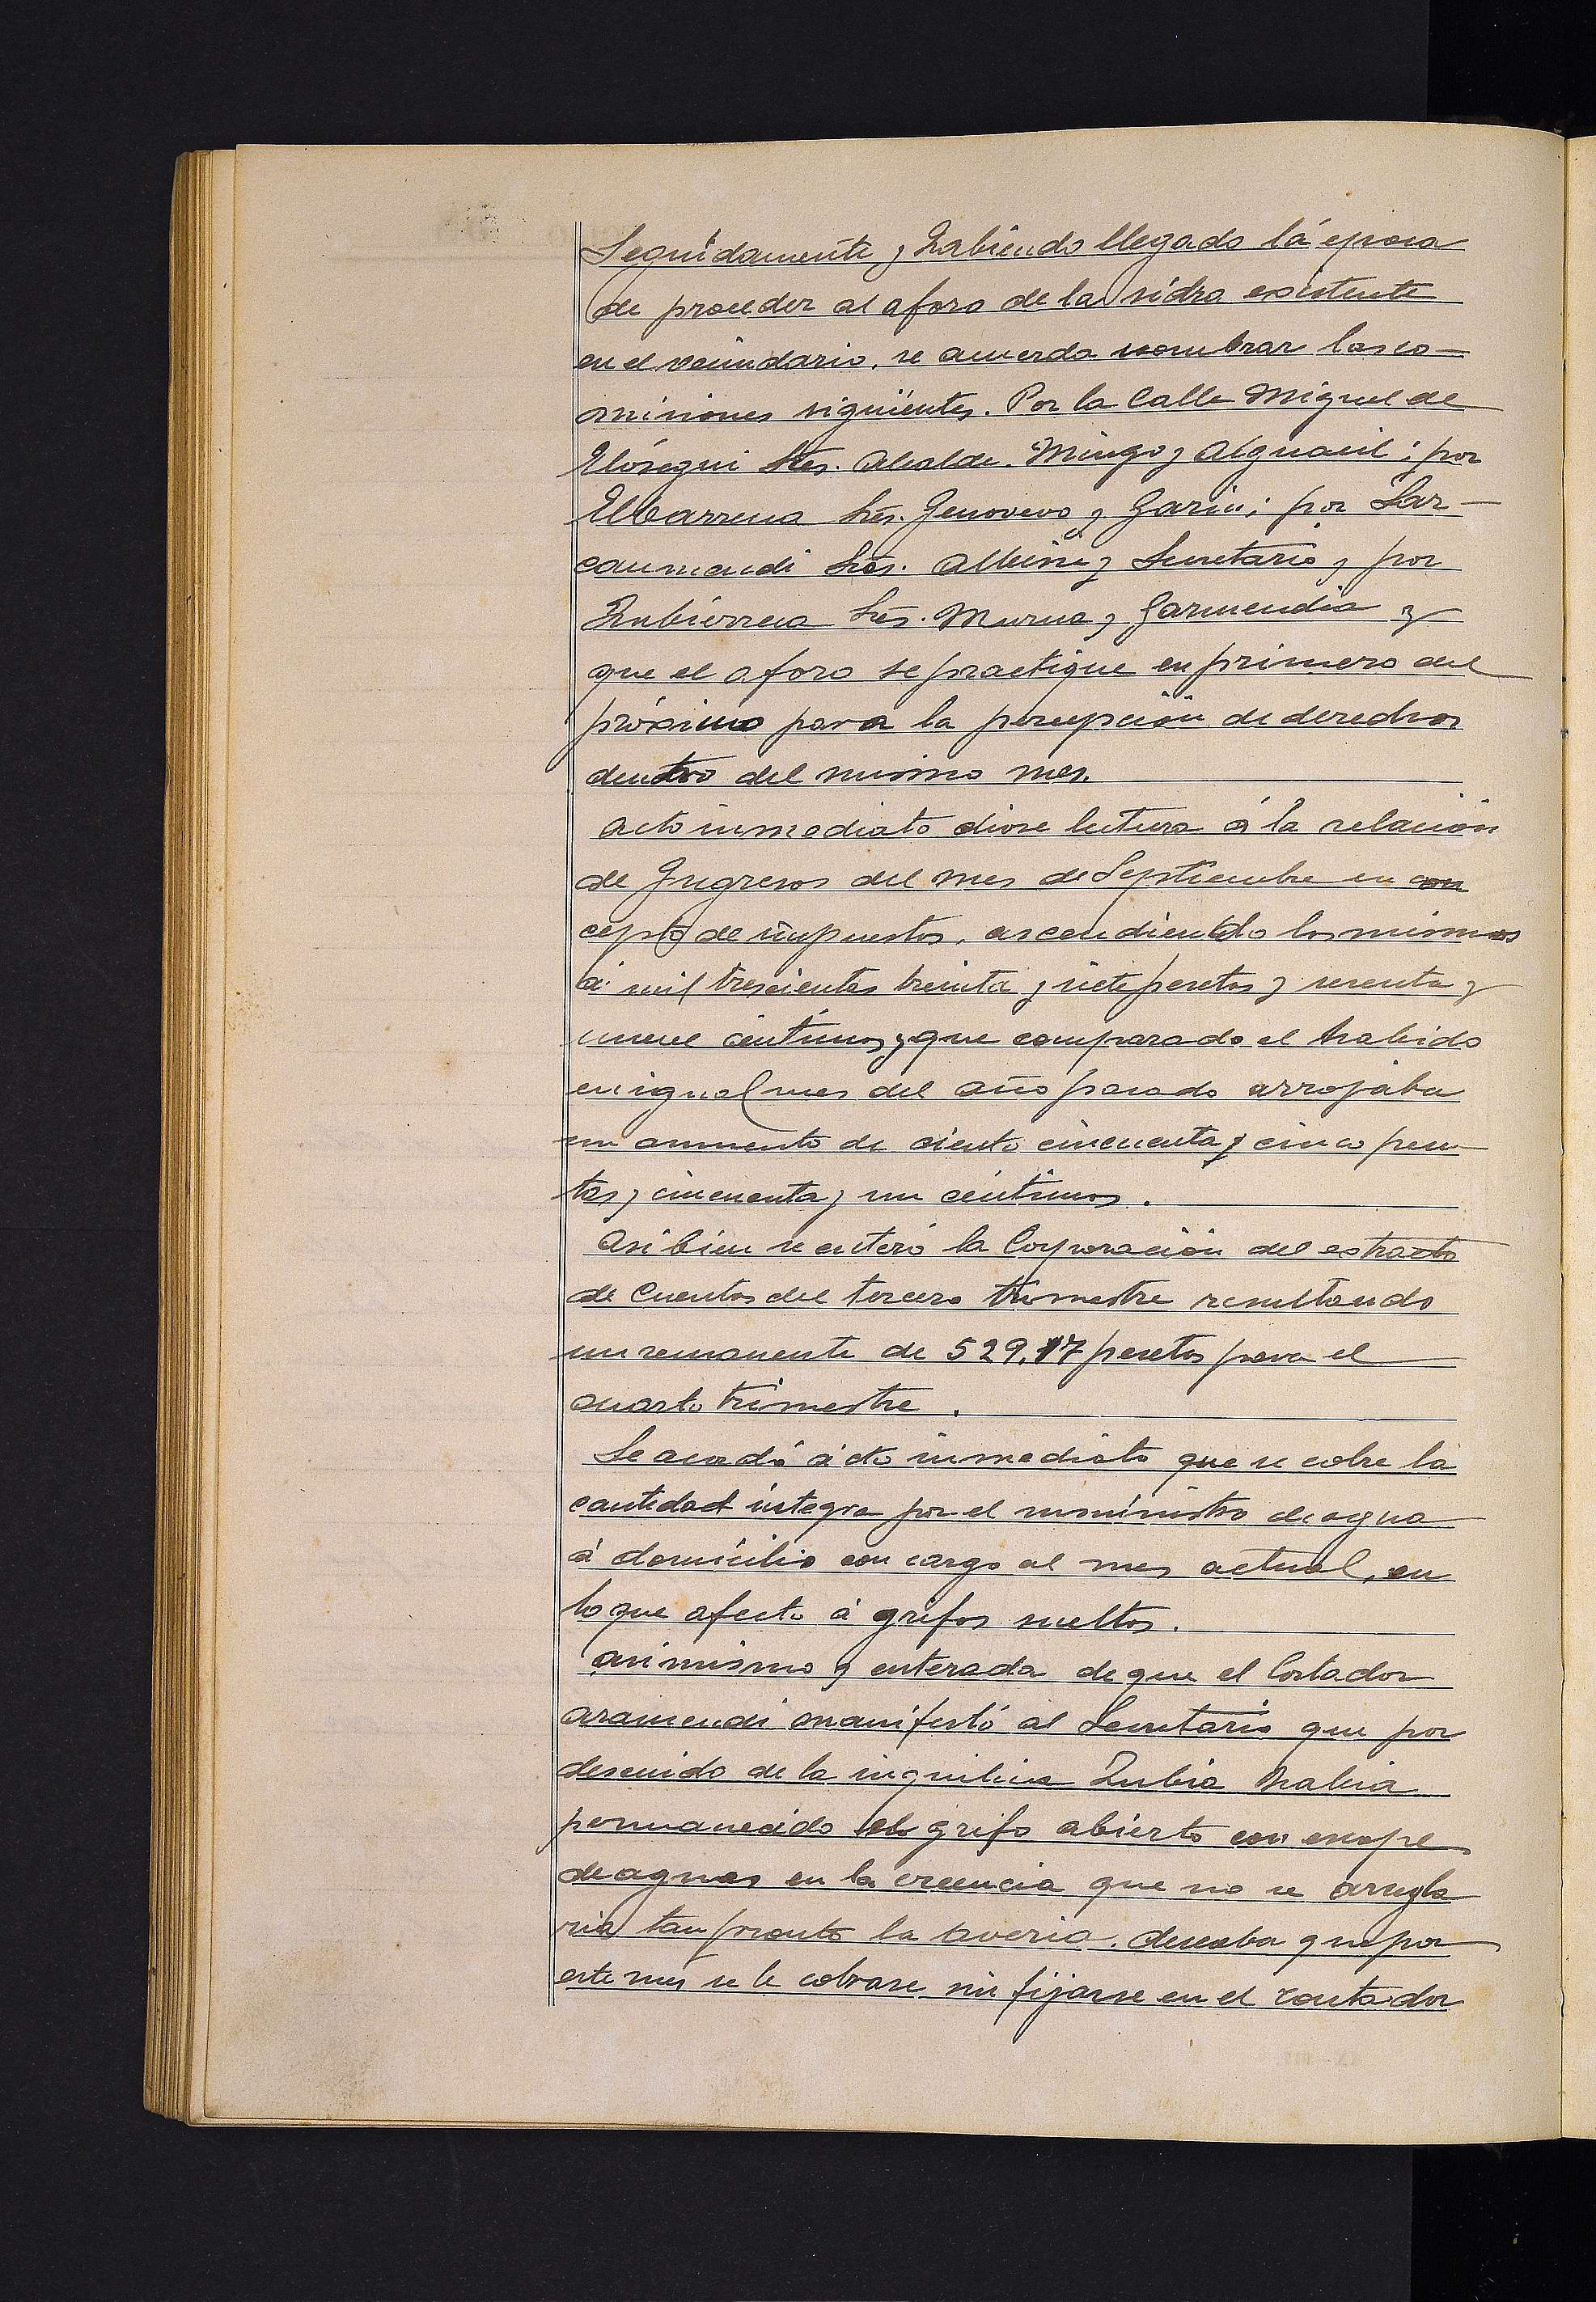 Seguidamente y habiendo llegado la epoca
de proceder al aforo de la sidra existente
en el vecindario, se acuerda nombrar las co-
misiones siguientes. Por la Calle Miguel de
Elósegui Sres. Alcalde. Mingo y Alguacil; por
Elbarrena Srs. Genovevo y Garin; por Lar-
caumendi Srs. Albisu y Secretario y por
Zubiorrea Srs. Murua y Garmendia y
que el aforo se practique en primero del
próximo para la percepción de derechos
dentro del mismo mes.
Acto inmediato diose lectura á la relación
de Ingresos del mes de Septiembre en con
cepto de impuestos, ascendiendo los mismos
á mil trescientas treinta y siete pesetas y sesenta y
nueve céntimos y que comparado el habido
en igual mes del año pasado arrojaba
un aumento de ciento cincuenta y cinco pese
tas y cincuenta y un céntimos.
Asi bien se enteró la Corporación del estracto
de Cuentas del tercero trimestre resultando
un remanente de 529,17 pesetas para el
cuarto trimestre.
Se acordó acto inmediato que se cobre la
cantidad integra por el suministro de agua
á domicilio con cargo al mes actual, en
lo que afecta á grifos sueltos.
Asimismo y enterada de que el Cortador
Aramendi manifestó al Secretario que por
descuido de la inquilina Zubia habia
permanecido el grifo abierto con escape
de aguas en la creencia que no se arregla
ria tan pronto la averia, deseaba que por
este mes se le cobrase sin fijarse en el contador